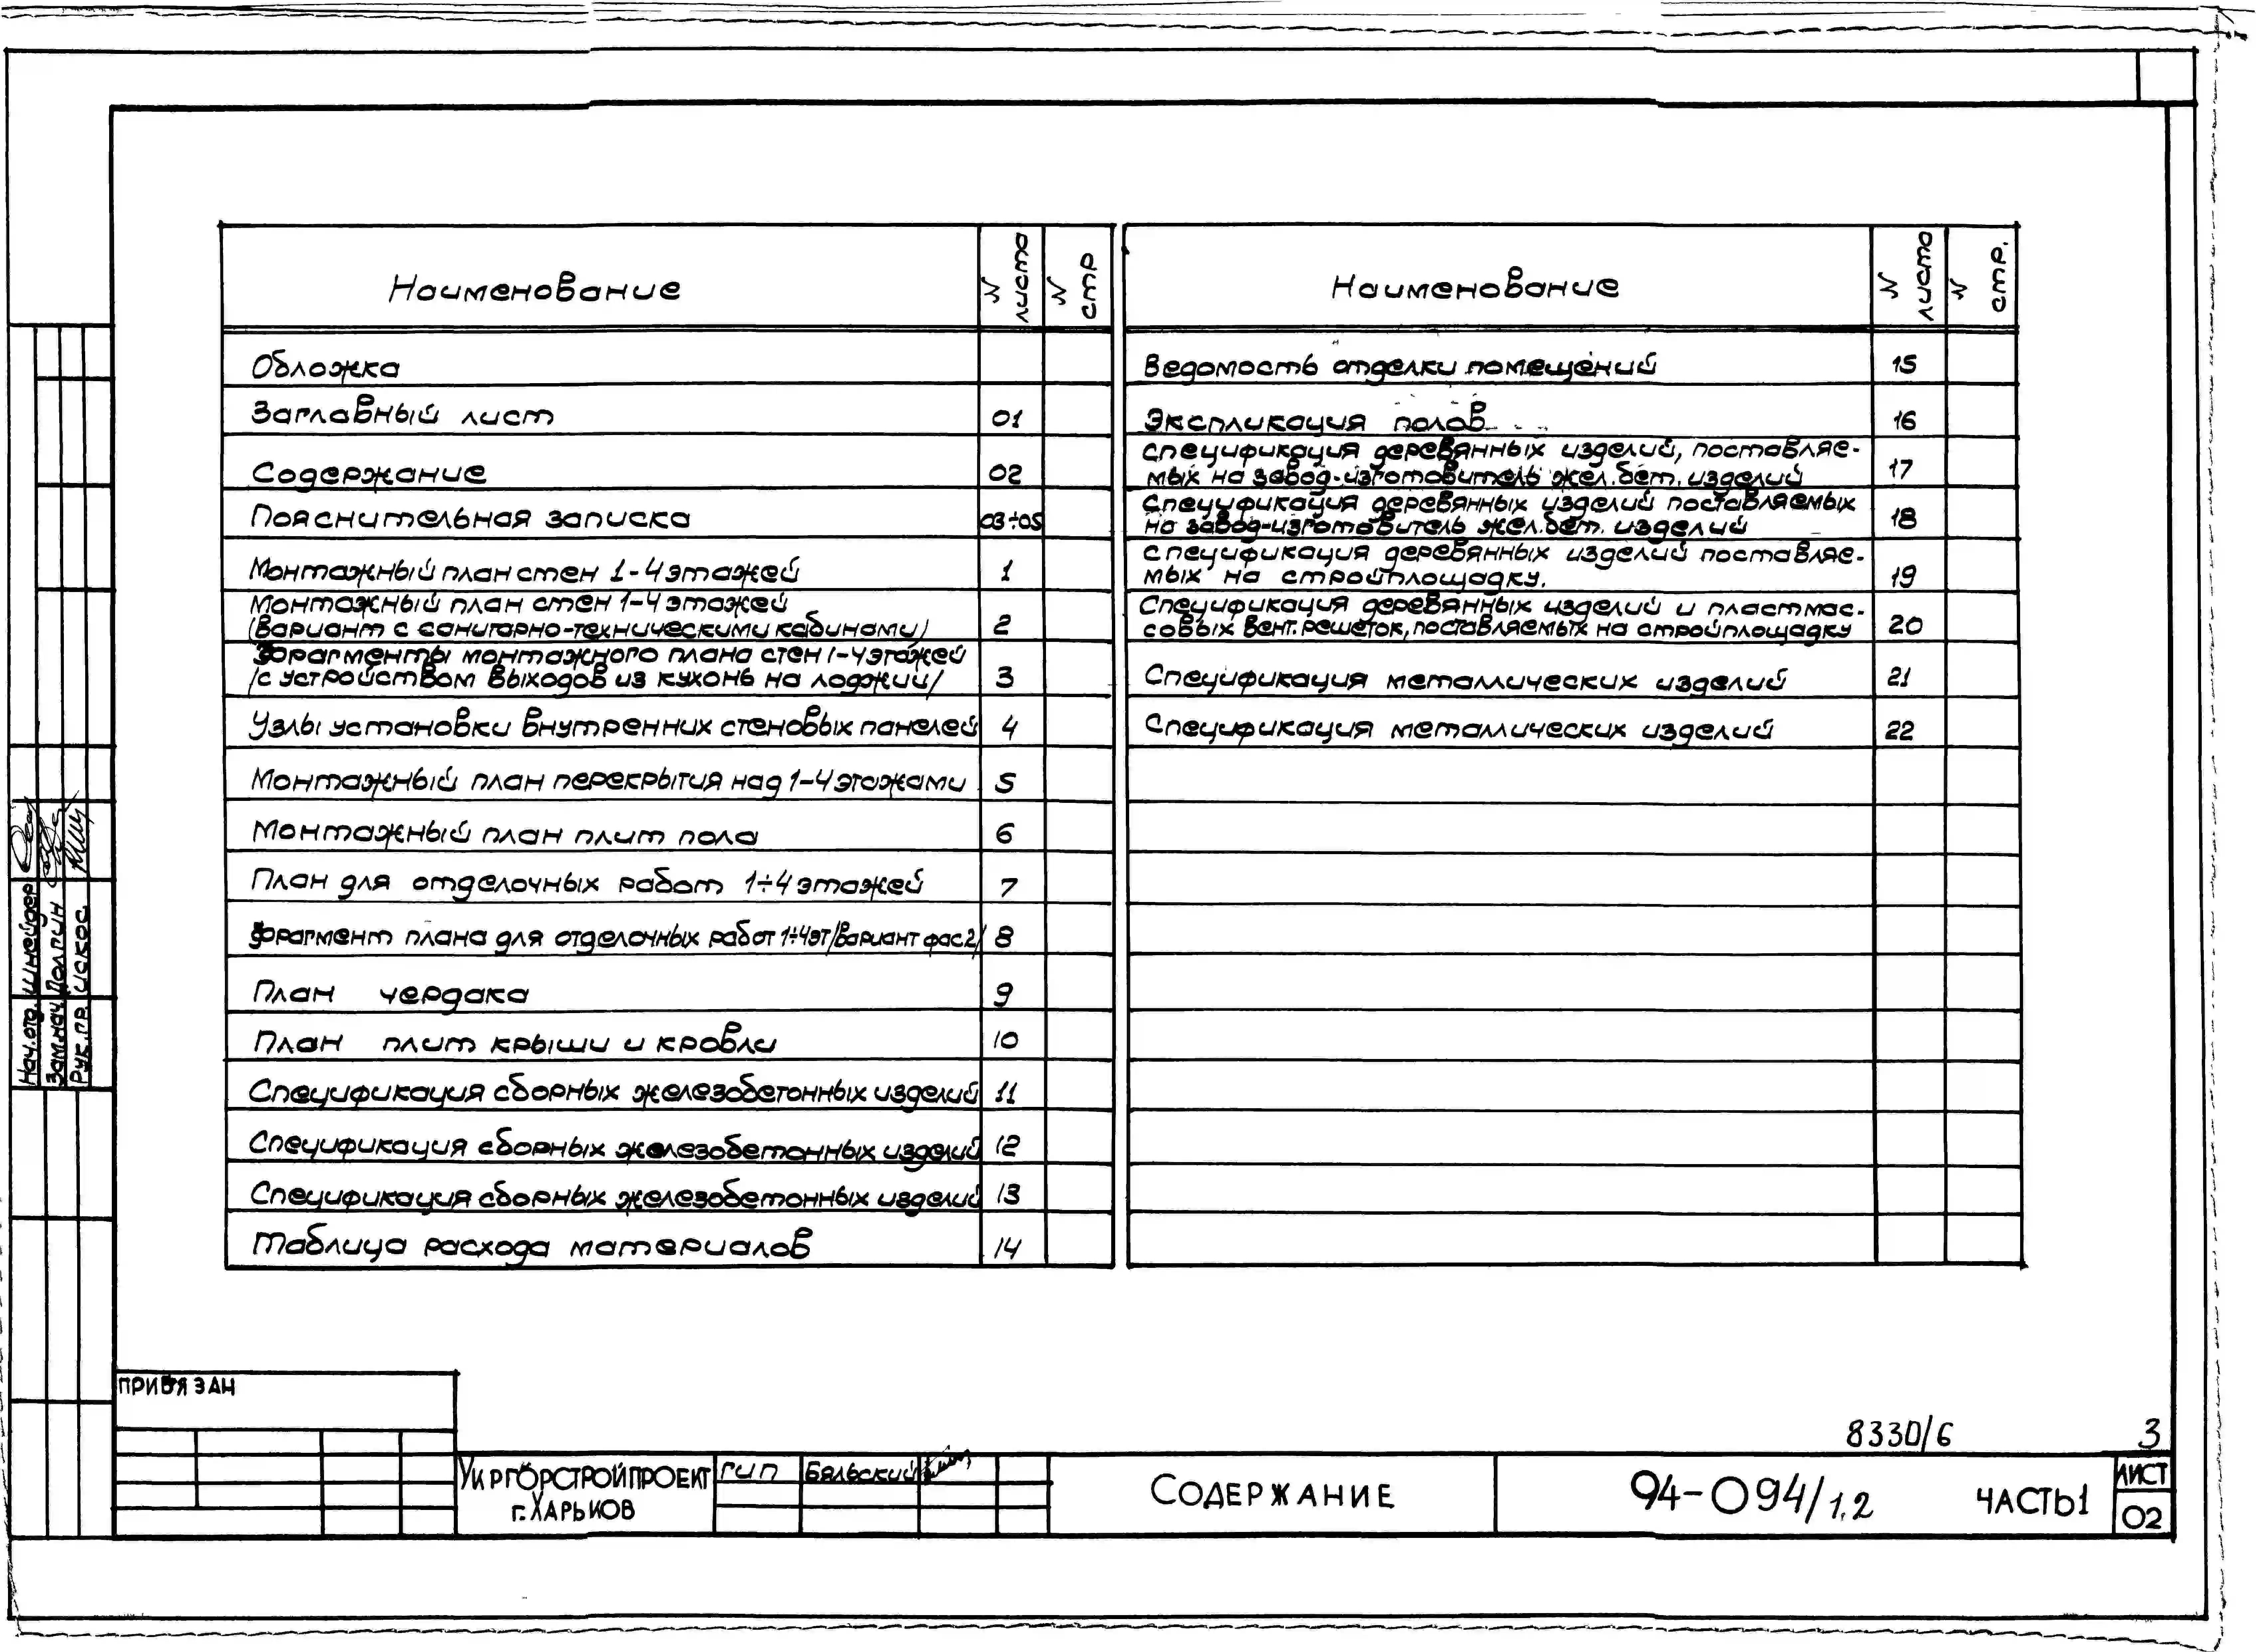 Наименование
N листа
N стр
Обложка
Заглавный лист 01
Содержание 02
Пояснительная записка 03÷05
Монтажный план стен 1-4 этажей 1
Монтажный план стен 1-4 этажей
(Вариант с санитарно-техническими кабинами) 2
Фрагменты монтажного плана стен 1-4 этажей
/с устройством выходов из кухонь на лоджии/ 3
Узлы установки внутренних стеновых панелей 4
Монтажный план перекрытия над 1-4 этажами 5
Монтажный план плит пола 6
План для отделочных работ 1÷4 этажей 7
Фрагмент плана для отделочных работ 1÷4эт/вариант фас.2/ 8
План чердака 9
План плит крыши и кровли 10
Спецификация сборных железобетонных изделий 11
Спецификация сборных железобетонных изделий 12
Спецификация сборных железобетонных изделий 13
Таблица расхода материалов 14
Наименование
N листа
N стр.
Ведомость отделки помещений 15
Экспликация полов 16
Спецификация деревянных изделий, поставляе-
мых на завод-изготовитель жел.бет. изделий 17
Спецификация деревянных изделий поставляемых
на завод-изготовитель жел.бет. изделий 18
Спецификация деревянных изделий поставляе-
мых на стройплощадку. 19
Спецификация деревянных изделий и пластмас-
совых вент.решеток, поставляемых на стройплощадку 20
Спецификация металлических изделий 21
Спецификация металлических изделий 22
Нач.отд. Шнейдер
Зам.нач. Долгин
Рук.гр. Искос
ПРИВЯЗАН
8330/6 3
УКРГОРСТРОЙПРОЕКТ
г.ХАРЬКОВ
ГИП Бяльский
СОДЕРЖАНИЕ
94-094/1.2 ЧАСТЬ1
ЛИСТ
02